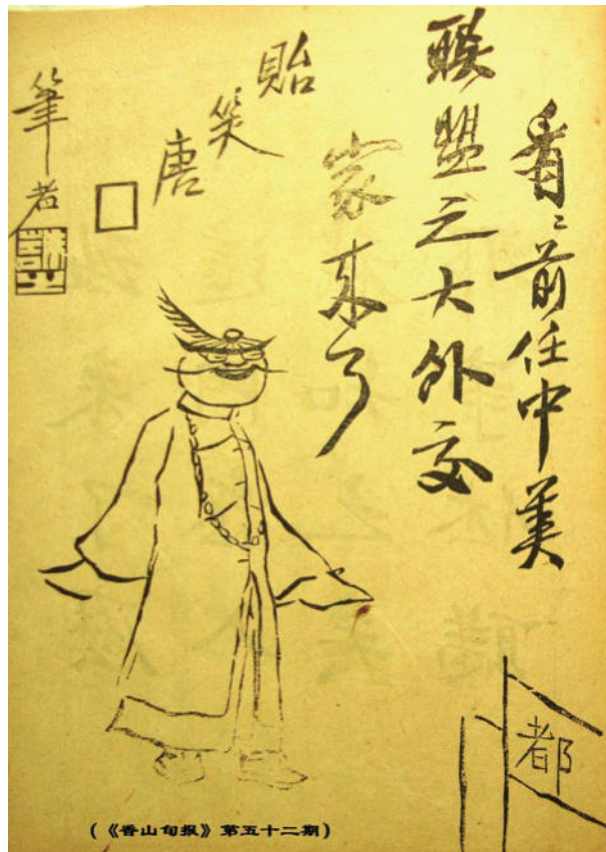 看〻前任中美
聯盟之大外交
家來了
貽笑唐□
筆者
都
(《香山旬报》第五十二期)